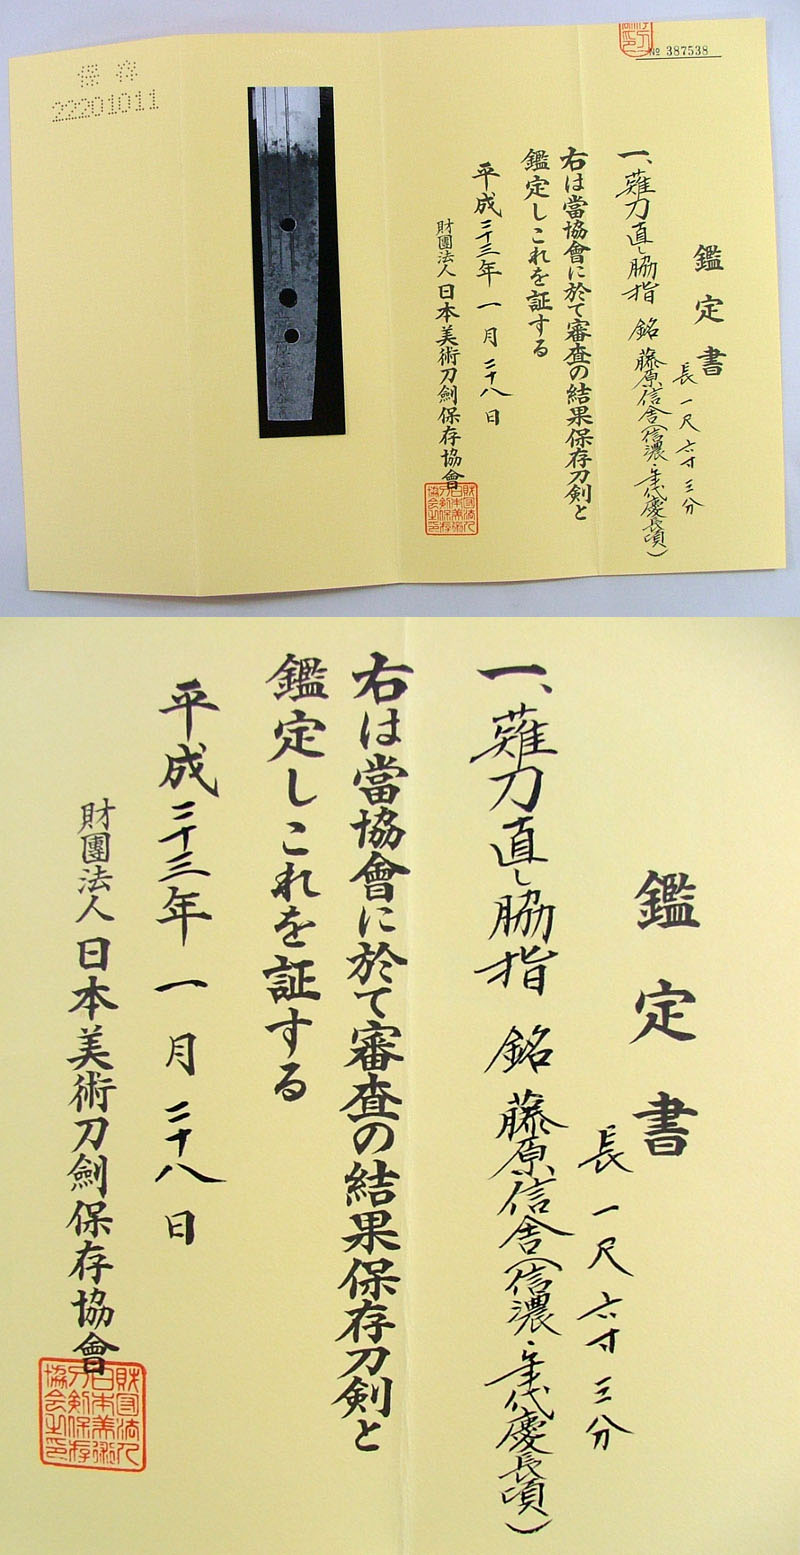 保存
22201011
№ 387538
鑑定書
一、薙刀直し脇指 銘 藤原信舎(信濃・年代慶長頃)
長一尺六寸三分
右は當協會に於て審査の結果保存刀剣と
鑑定しこれを証する
平成二十三年一月二十八日
財團法人日本美術刀劍保存協會
財団法人
日本美術
刀剣保存
協会之印
鑑定書
長一尺六寸三分
一、薙刀直し脇指 銘 藤原信舎(信濃・年代慶長頃)
右は當協會に於て審査の結果保存刀剣と
鑑定しこれを証する
平成二十三年一月二十八日
財團法人日本美術刀劍保存協會
財団法人
日本美術
刀剣保存
協会之印